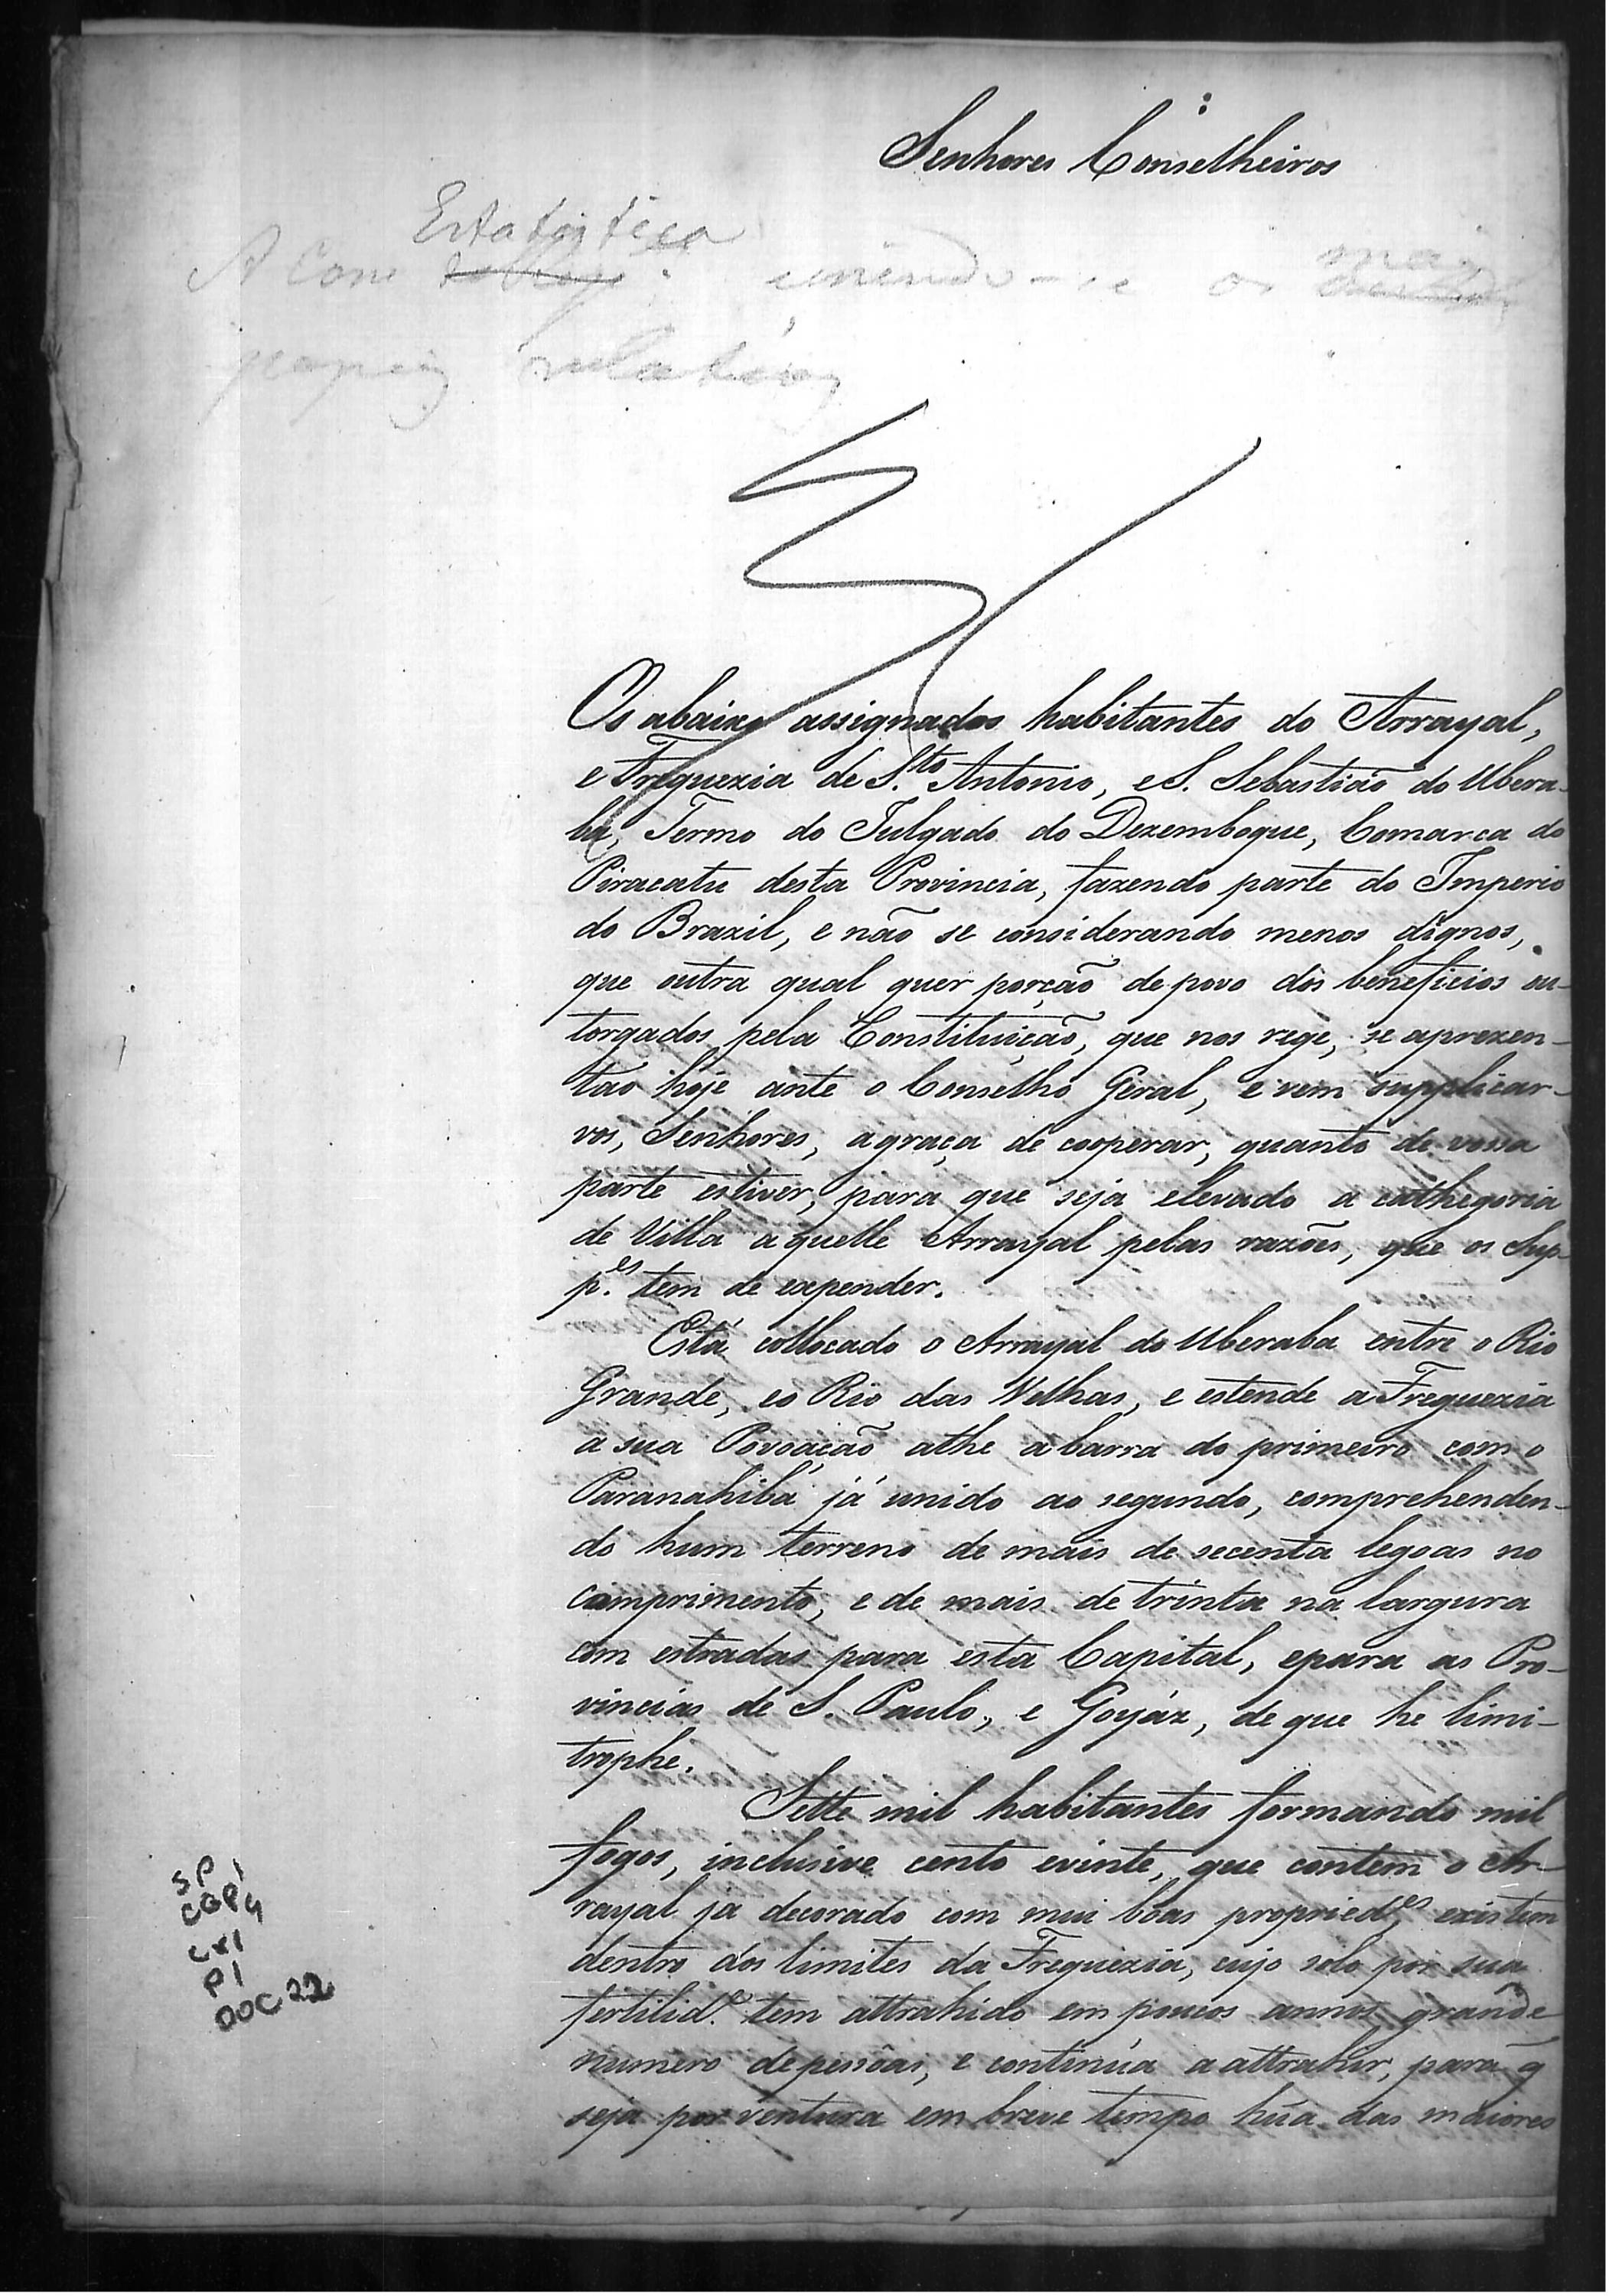 Senhores Conselheiros
Estatistica
A Com unindo-se os mais
papeis relativos
Os abaixo assignados habitantes do Arrayal,
e Freguezia de S.to Antonio, e S. Sebastião do Ubera-
ba, Termo do Julgado do Dezemboque, Comarca do
Piracatu desta Provincia, fazendo parte do Imperio
do Brazil, e não se considerando menos dignos,
que outra qual quer porção de povo dos beneficios ou-
torgados pela Constituição, que nos rege, se aprezen-
tão hoje ante o Conselho Geral, e vem supplicar-
vos, Senhores, a graça de cooperar, quanto de vossa
parte estiver, para que seja elevado a cathegoria
de Villa aquelle Arrayal pelas razões, que os Sup-
p.es tem de expender.
Está collocado o Arrayal do Uberaba entre o Rio
Grande, eo Rio das Velhas, e estende a Freguezia
a sua Povoação athe a barra do primeiro com o
Paranahiba já unido ao segundo, comprehenden-
do hum terreno de mais de secenta legoas no
comprimento, e de mais de trinta na largura
com estradas para esta Capital, epara as Pro-
vincias de S. Paulo, e Goyáz, de que he limi-
trophe.
Sette mil habitantes formando mil
fogos, inclusive cento evinte, que contem o Ar-
rayal já decorado com mui bôas propried.es existem
dentro dos limites da Freguezia, cujo solo por sua
fertilid.e tem attrahido em poucos annos grande
numero de pessôas, e continúa a attrahir, para q̃
seja por ventura em breve tempo hũa das maiores
SP
CGP4
CX1
P1
DOC 22